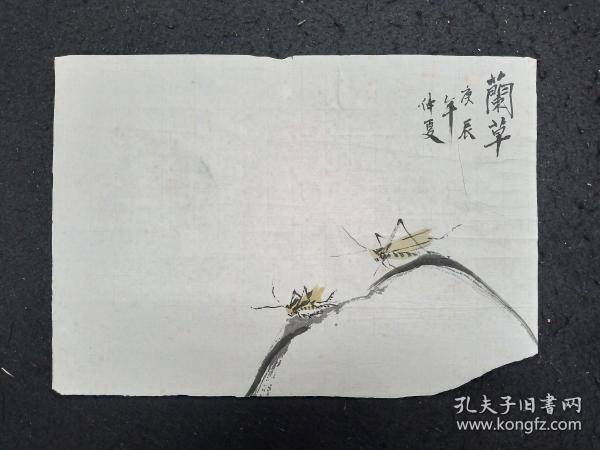 蘭草
庚辰
年
仲夏
孔夫子旧書网
www.kongfz.com